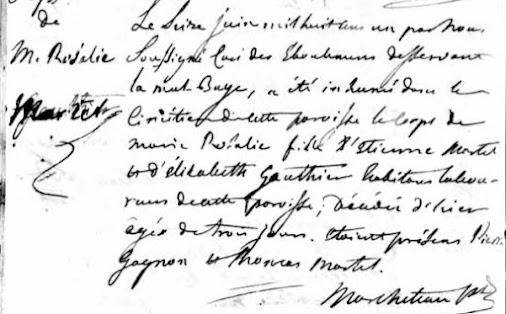 de
M. Rosalie
Martel
Le Seize juin mil huit cens un par Nous
Soussigné Curé des Eboulemens desservant
la mal Baye, a été inhumé dans le
Cimétiere de cette paroisse le corps de
marie Rosalie fille d'Etienne Martel
et d'Elizabeth Gauthier habitans labou-
reurs de cette paroisse, décédée d'hier
agée de trois jours. Etoient présens Pierre
Gagnon et Thomas Martel.
Marcheteau ptr